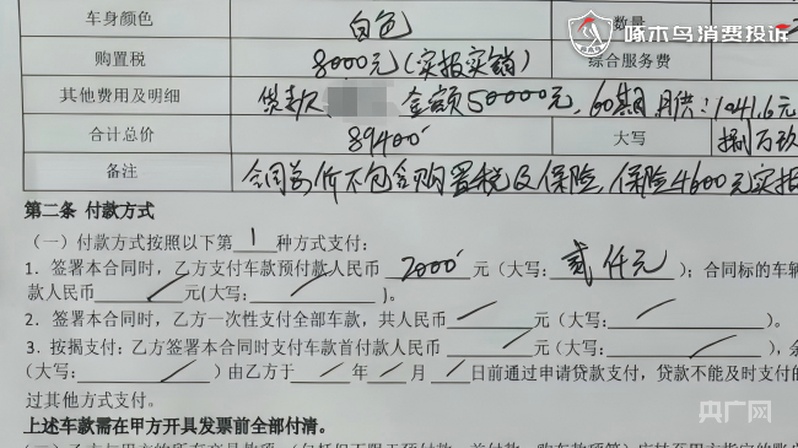 啄木鸟消费投诉
车身颜色 白色 数量
购置税 8000元(实报实销) 综合服务费
其他费用及明细 贷款 金额50000元,60期,月供:1041.6元
合计总价 89400 大写 捌万玖
备注 合同总价不包含购置税及保险,保险4600元实报
第二条 付款方式
(一)付款方式按照以下第 1 种方式支付:
1. 签署本合同时,乙方支付车款预付款人民币 2000 元(大写: 贰仟元 );合同标的车辆
款人民币 / 元(大写: / )。
2. 签署本合同时,乙方一次性支付全部车款,共人民币 / 元(大写: / )。
3. 按揭支付:乙方签署本合同时支付车款首付款人民币 / 元(大写: / ),余
(大写: / )由乙方于 / 年 / 月 / 日前通过申请贷款支付,贷款不能及时支付的
过其他方式支付。
上述车款需在甲方开具发票前全部付清。
央广网